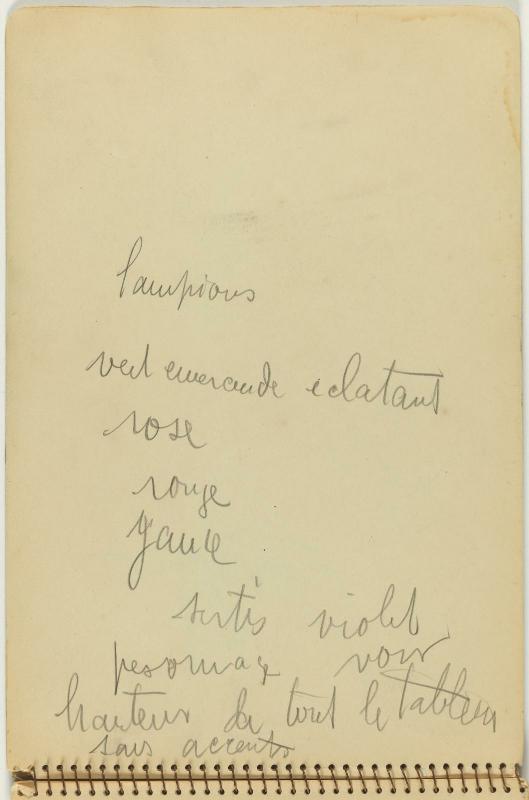 lampions
vert emeraude éclatant
rose
rouge
jaune
sertis violet
personnage noir
hauteur de tout le tableau
sans accents